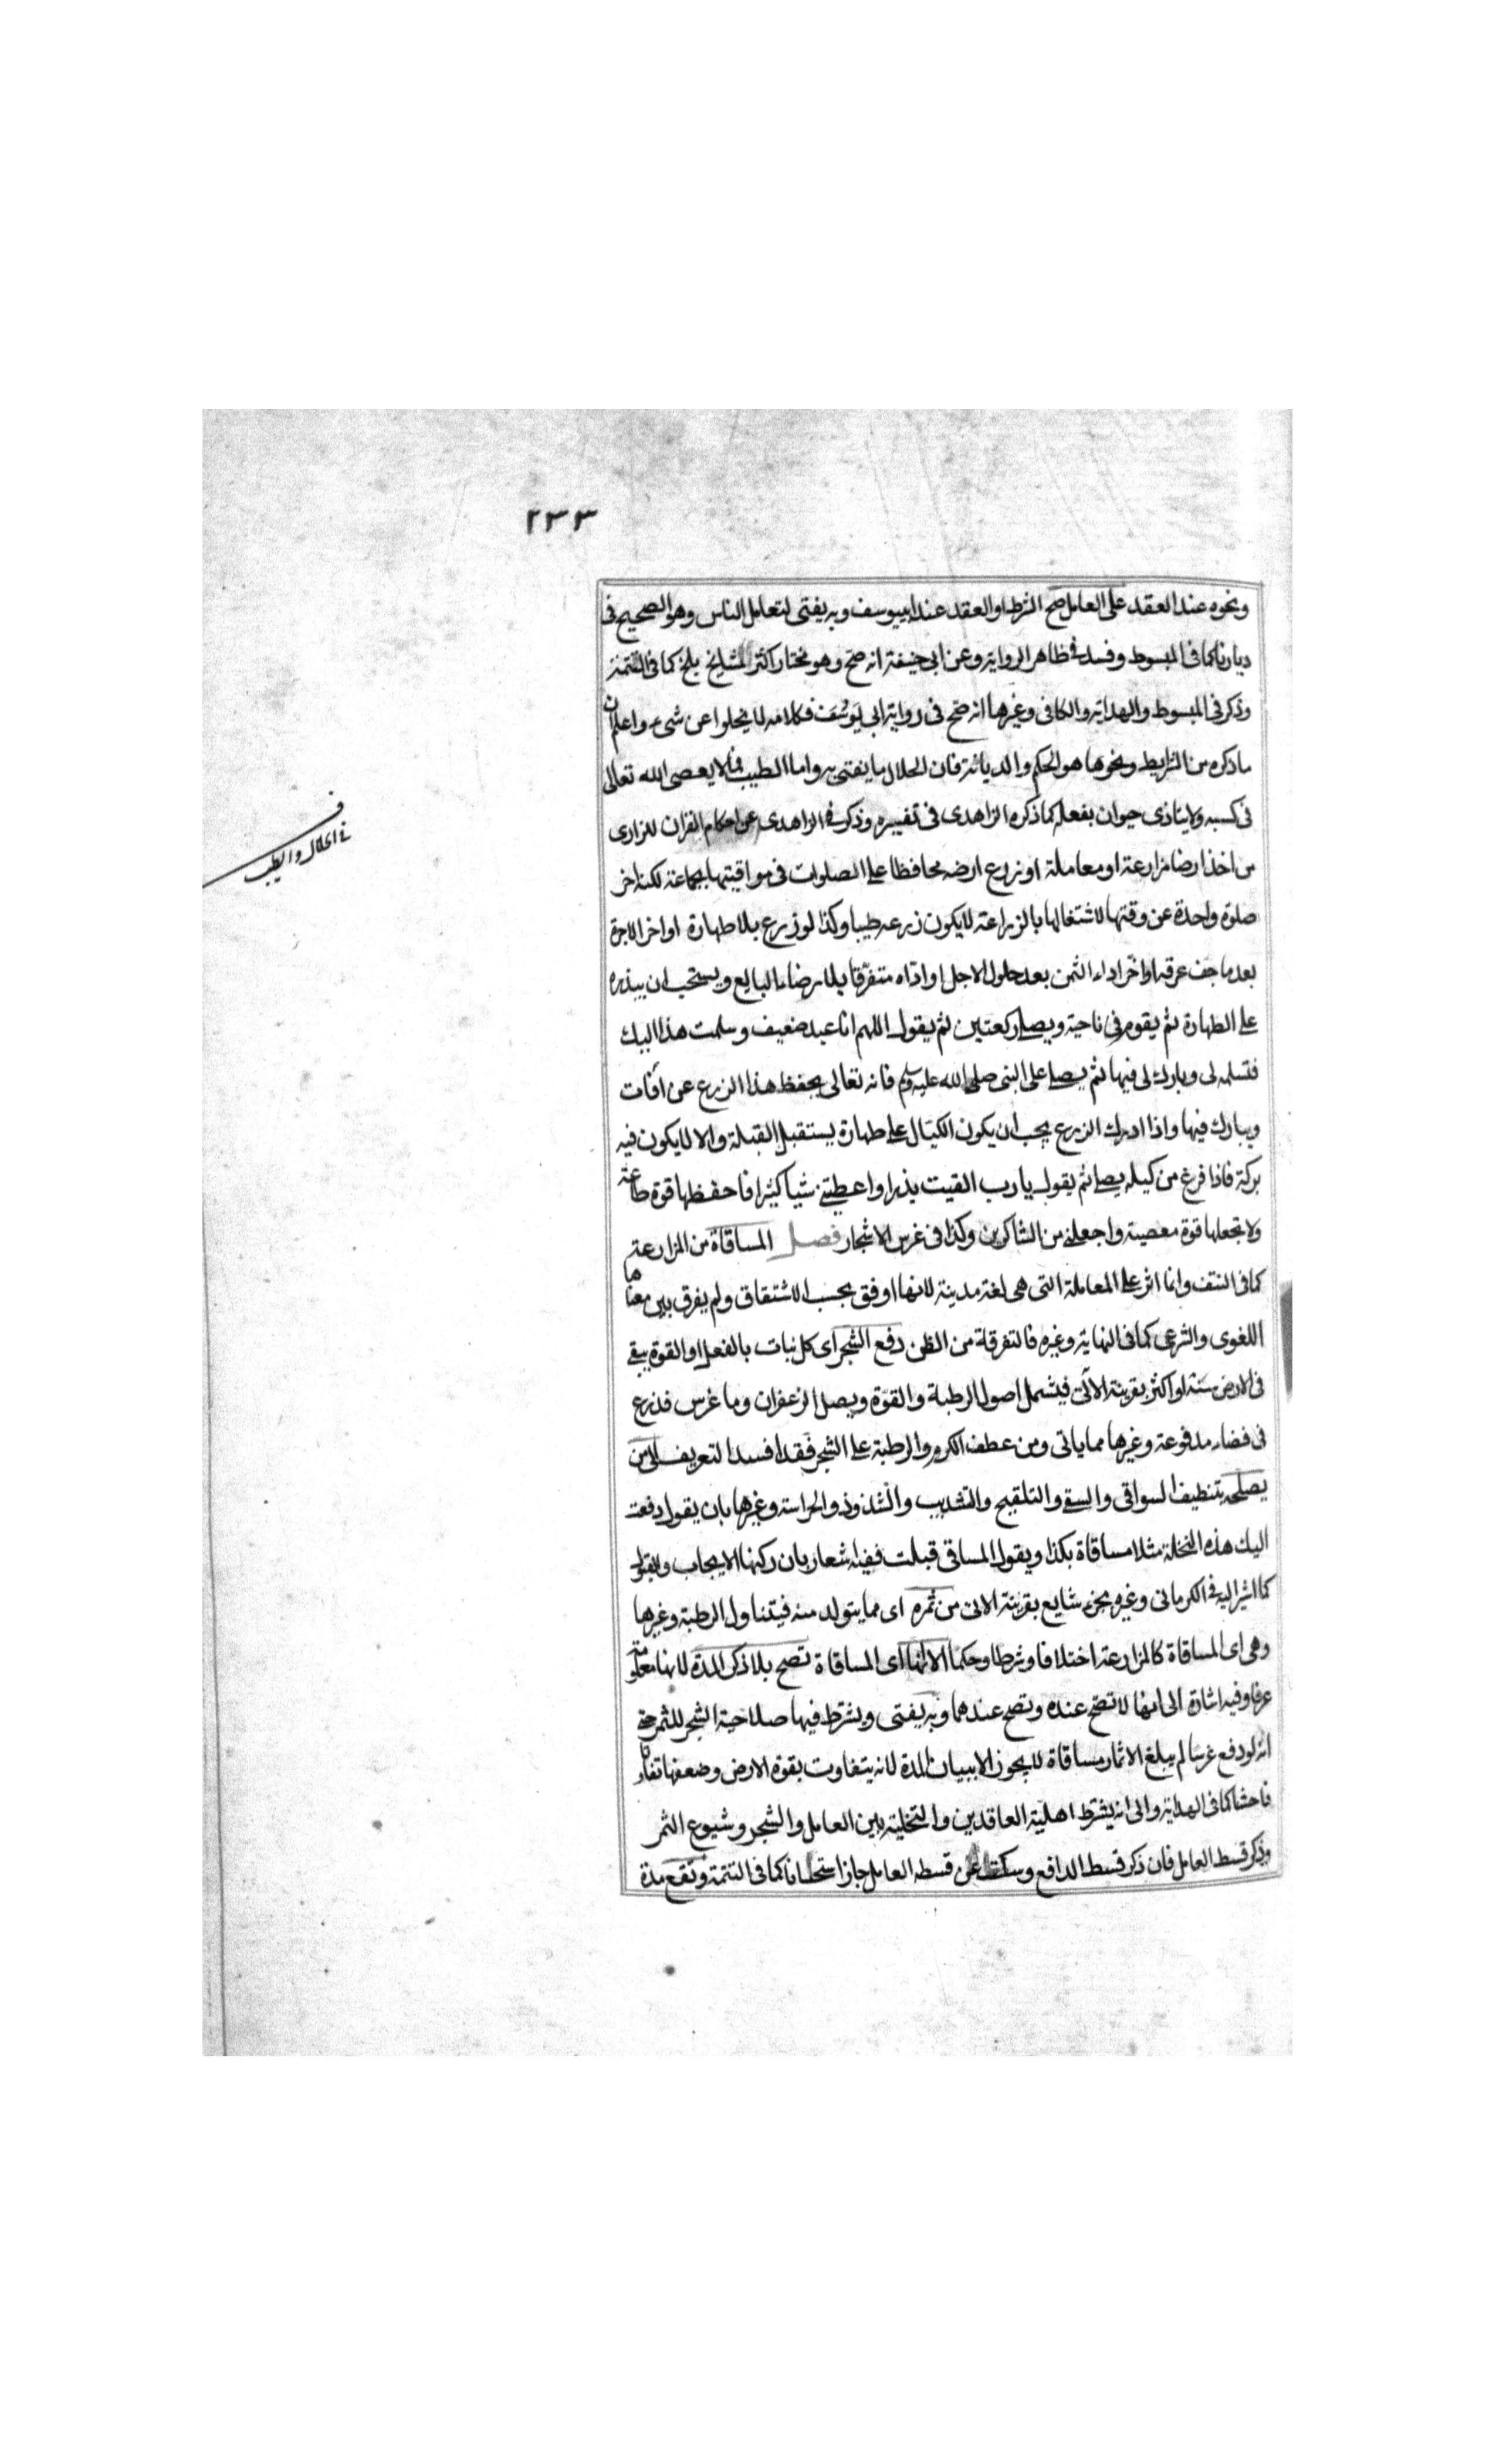 ٢٣٣
ونحوه عند العقد على العامل صح الشرط او العقد عند ابيوسف وبه يفتى لتعامل الناس وهو الصحيح فى
ديارنا كما فى المبسوط وفسد فى ظاهر الرواية وعن ابى حنيفة انه صح وهو مختار اكثر المشايخ بلخ كما فى التتمة
وذكر فى المبسوط والهداية والكافى وغيرها انه صح فى رواية ابى يوسف فكلامه لا يخلوا عن شىء واعلم ان
ما ذكره من الشرايط ونحوها هو الحكم والديانة فان الحلال ما يفتى به واما الطيب فما لا يعصى الله تعالى
فى كسبه ولا يتاذى حيوان بفعله كما ذكره الزاهدى فى تفسيره وذكر فى الزاهدى عن احكام القران للرازى
من اخذ ارضا مزارعة او معاملة او زرع ارضه محافظا على الصلوات فى مواقيتها بجماعة لكنه اخر
صلوة واحدة عن وقتها لاشتغالها بالزراعة لا يكون زرعه طيبا وكذا لو زرع بلا طهارة او اخر الاجرة
بعد ما جف عرقه او اخر اداء الثمن بعد حلول الاجل او ادّاه متفرقا بلا رضاء البايع ويستحب ان يبذره
على الطهارة ثم يقوم فى ناحية ويصلى ركعتين ثم يقول اللهم انا عبد ضعيف وسلمت هذا اليك
فتسلمه لى وبارك لى فيها ثم يصلى على النبى صلى الله عليه وسلم فانه تعالى يحفظ هذا الزرع عن آفات
ويبارك فيها واذا ادرك الزرع يجب ان يكون الكيّال على طهارة يستقبل القبلة والا لا يكون فيه
بركة فاذا فرغ من كيله يصلى ثم يقول يا رب القيت بذرا واعطيتنى شيا كثيرا فاحفظها قوة طاعة
ولا تجعلها قوة معصية واجعلنى من الشاكرين وكذا فى غرس الاشجار فصل المساقاة من المزارعة
كما فى النتف وانما اثر على المعاملة التى هى لغة مدينة لانها اوفق بحسب الاشتقاق ولم يفرق بين معناها
اللغوى والشرعى كما فى النهاية وغيره فالتفرقة من الظن دفع الشجر اى كل نبات بالفعل او القوة يبقى
فى الارض سنة او اكثر بقرينة الآتى فيشمل اصول الرطبة والفوّة وبصل الزعفران وما غرس فزرع
فى فضاء مدفوعة وغيرها مما ياتى ومن عطف الكرم والرطبة على الشجر فقد افسد التعريف الى من
يصلحه بتنظيف السواقى والسقى والتلقيح والتشذيب والشذوذ والحراسة وغيرها بان يقول دفعت
اليك هذه النخلة مثلا مساقاة بكذا ويقول المساقى قبلت ففيه اشعار بان ركنها الايجاب والقبول
كما اشير اليه فى الكرمانى وغيره بجزء شايع بقرينة الاتى من ثمره اى مما يتولد منه فيتناول الرطبة وغيرها
وهى اى المساقاة كالمزارعة اختلافا وشرطا وحكما الا انها اى المساقاة تصح بلا ذكر المدة لانها معلومة
عرفا وفيه اشارة الى انها لا تصح عنده وتصح عندهما وبه يفتى ويشترط فيها صلاحية الشجر للثمر حتى
انه لو دفع غرسا لم يبلغ الاثمار مساقاة لا يجوز الا ببيان المدة لانه يتفاوت بقوة الارض وضعفها تفاوتا
فاحشا كما فى الهداية والى انه يشترط اهلية العاقدين والتخلية بين العامل والشجر وشيوع الثمر
وذكر قسط العامل فان ذكر قسط الدافع وسكت عن قسط العامل جاز استحسانا كما فى التتمة وتقع مدة
ف
فى الحلال والطيب